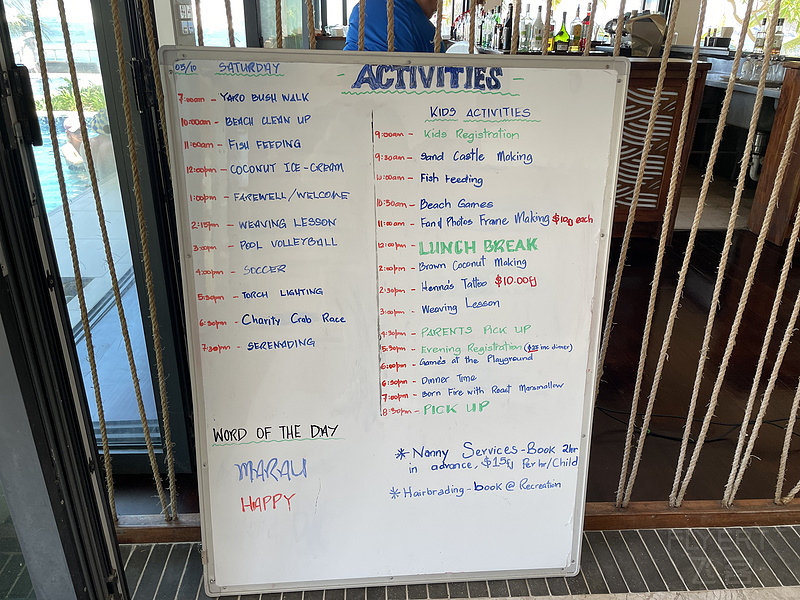 03/10 SATURDAY
ACTIVITIES
7:00am - YARO BUSH WALK
10:00am - BEACH CLEAN UP
11:00am - FISH FEEDING
12:00pm - COCONUT ICE-CREAM
1:00pm - FAREWELL/WELCOME
2:15pm - WEAVING LESSON
3:00pm - POOL VOLLEYBALL
4:00pm - SOCCER
5:30pm - TORCH LIGHTING
6:30pm - Charity Crab Race
7:30pm - SERENADING
WORD OF THE DAY
MARAU
HAPPY
KIDS ACTIVITIES
9:00am - Kids Registration
9:30am - Sand Castle Making
10:00am - Fish Feeding
10:30am - Beach Games
11:00am - Foam Photos Frame Making $10fj each
12:00pm - LUNCH BREAK
2:00pm - Brown Coconut Making
2:30pm - Henna's Tattoo $10.00fj
3:00pm - Weaving Lesson
4:30pm - PARENTS PICK UP
5:30pm - Evening Registration ($25 inc dinner)
6:00pm - Games at the Playground
6:30pm - Dinner Time
7:00pm - Born Fire with Roast Marsmallow
8:30pm - PICK UP
* Nanny Services - Book 2hr
in advance, $15fj Per hr/Child
* Hairbrading - book @ Recreation
FLYERT